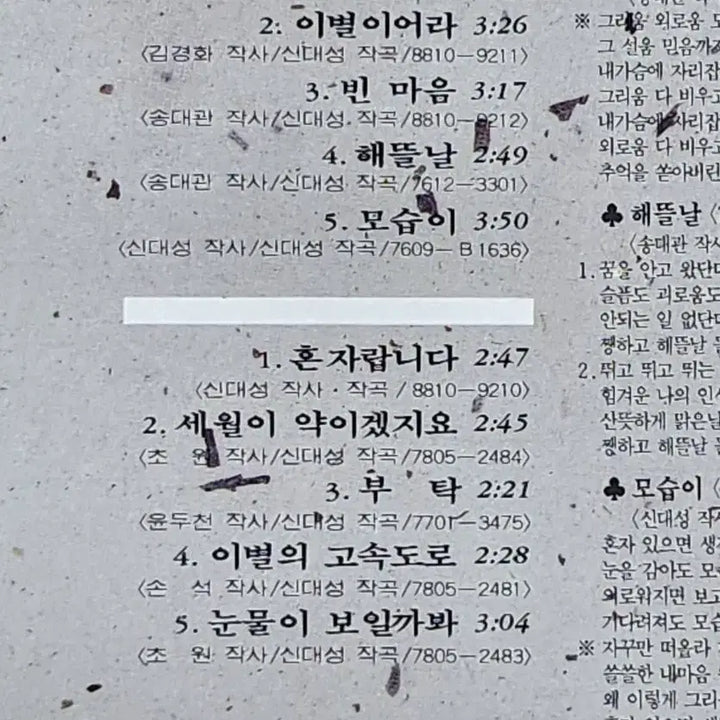 2. 이별이어라 3:26
〈김경화 작사/신대성 작곡/8810-9211〉
3. 빈 마음 3:17
〈송대관 작사/신대성 작곡/8810-9212〉
4. 해뜰날 2:49
〈송대관 작사/신대성 작곡/7612-3301〉
5. 모습이 3:50
〈신대성 작사/신대성 작곡/7609-B1636〉
1. 혼자랍니다 2:47
〈신대성 작사·작곡/8810-9210〉
2. 세월이 약이겠지요 2:45
〈초 원 작사/신대성 작곡/7805-2484〉
3. 부 탁 2:21
〈윤두천 작사/신대성 작곡/7701-3475〉
4. 이별의 고속도로 2:28
〈손 석 작사/신대성 작곡/7805-2481〉
5. 눈물이 보일까봐 3:04
〈초 원 작사/신대성 작곡/7805-2483〉
※ 그리움 외로움
그 설움 믿음까지
내가슴에 자리잡
그리움 다 비우고
내가슴에 자리잡
외로움 다 비우고
추억을 쏟아버린
♣ 해뜰날
〈송대관 작사
1. 꿈을 안고 왔단다
슬픔도 괴로움도
안되는 일 없단다
쨍하고 해뜰날
2. 뛰고 뛰고 뛰는
힘겨운 나의 인
산뜻하게 맑은날
쨍하고 해뜰날
♣ 모습이
〈신대성 작사
혼자 있으면 생
눈을 감아도 모
외로워지면 보고
기다려져도 모습
※ 자꾸만 떠올라
쓸쓸한 내마음
왜 이렇게 그리